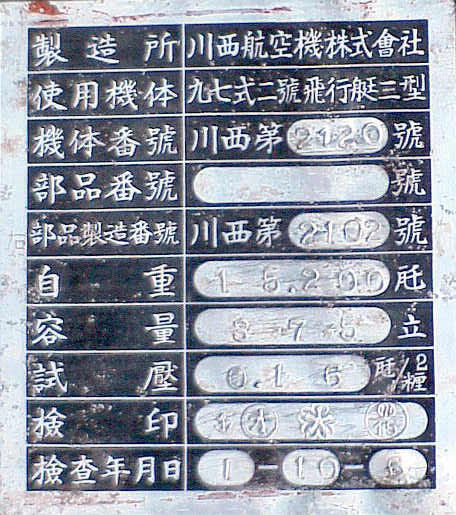 製造所 川西航空機株式會社
使用機体 九七式二號飛行艇三型
機体番號 川西第2120號
部品番號 號
部品製造番號 川西第2102號
自重 15.200瓩
容量 875立
試壓 0.16瓩/糎2
検印
検査年月日 1-10-